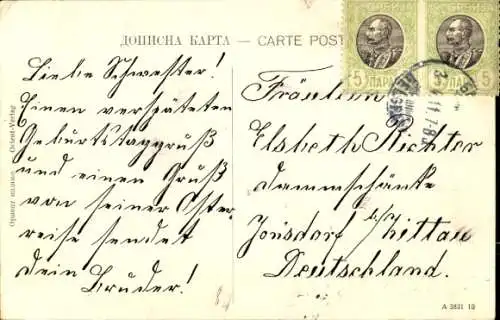 ДОПИСНА КАРТА — CARTE POST
СРБИЈА СРБИЈА
5 ПАРА 5 5 ПАРА 5
Liebe Schwester!
Einen verspäteten
Geburtstaggruß
und einen Gruß
von seiner Oster-
reise sendet
dein
Bruder!
Fräulein
Elsbeth Richter
Dammschänke
Jonsdorf b/ Zittau
Deutschland.
Orient-Verlag
A 3831 13